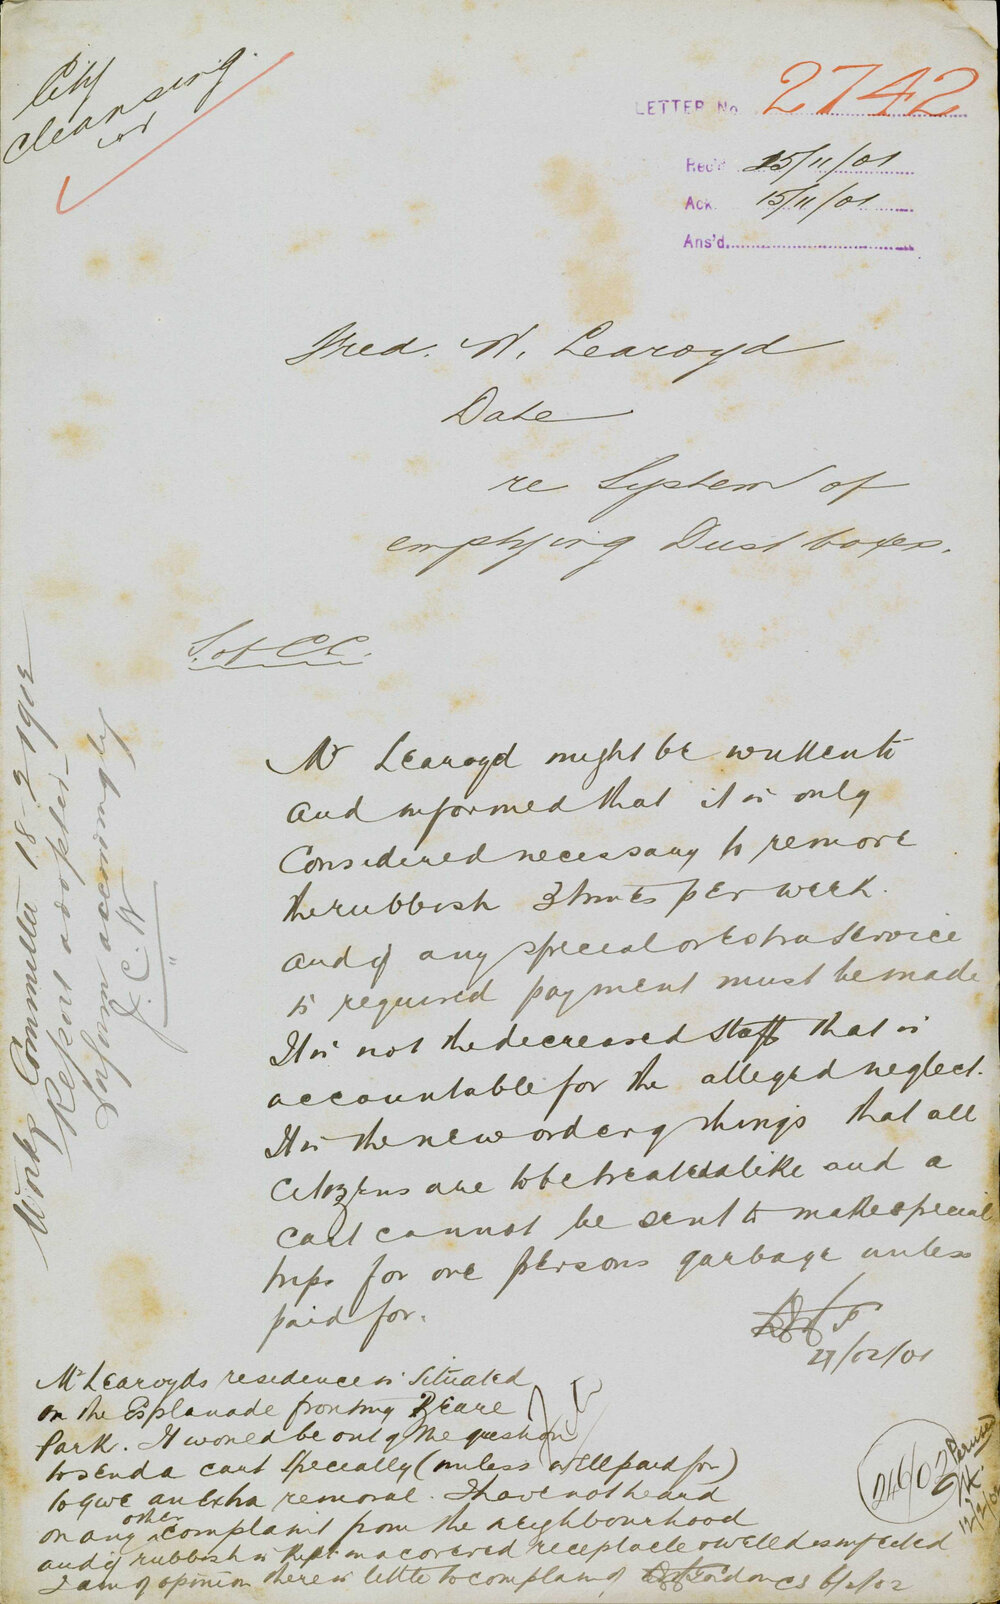 City
Cleansing
LETTER No. 2742
Rec'd 15/11/01
Ack. 15/11/01
Ans'd.
Fred. W. Learoyd
Date
re System of
emptying Dust boxes.
S. of C.C.
Mr Learoyd might be written to
and informed that it is only
Considered necessary to remove
the rubbish 3 times per week.
and if any special or Extra Service
is required payment must be made
It is not the decreased Staff that is
accountable for the alleged neglect.
It is the new order of things that all
Citizens are to be treated alike and a
cart cannot be sent to make special
trips for one persons garbage unless
paid for.
Works Committee 18-2-1902
Report adopted
Inform accordingly
J.C.W
Mr Learoyds residence is Situated
on the Esplanade fronting Beare
Park. It would be out of the question
to send a cart Specially (unless well paid for)
to give an Extra removal. I have not heard
on any other complaint from the neighbourhood
and if rubbish is kept in a covered receptacle & well disinfected
I am of opinion there is little to complain of Gordon CS 6/2/02
246/02
Perused
12/2/02